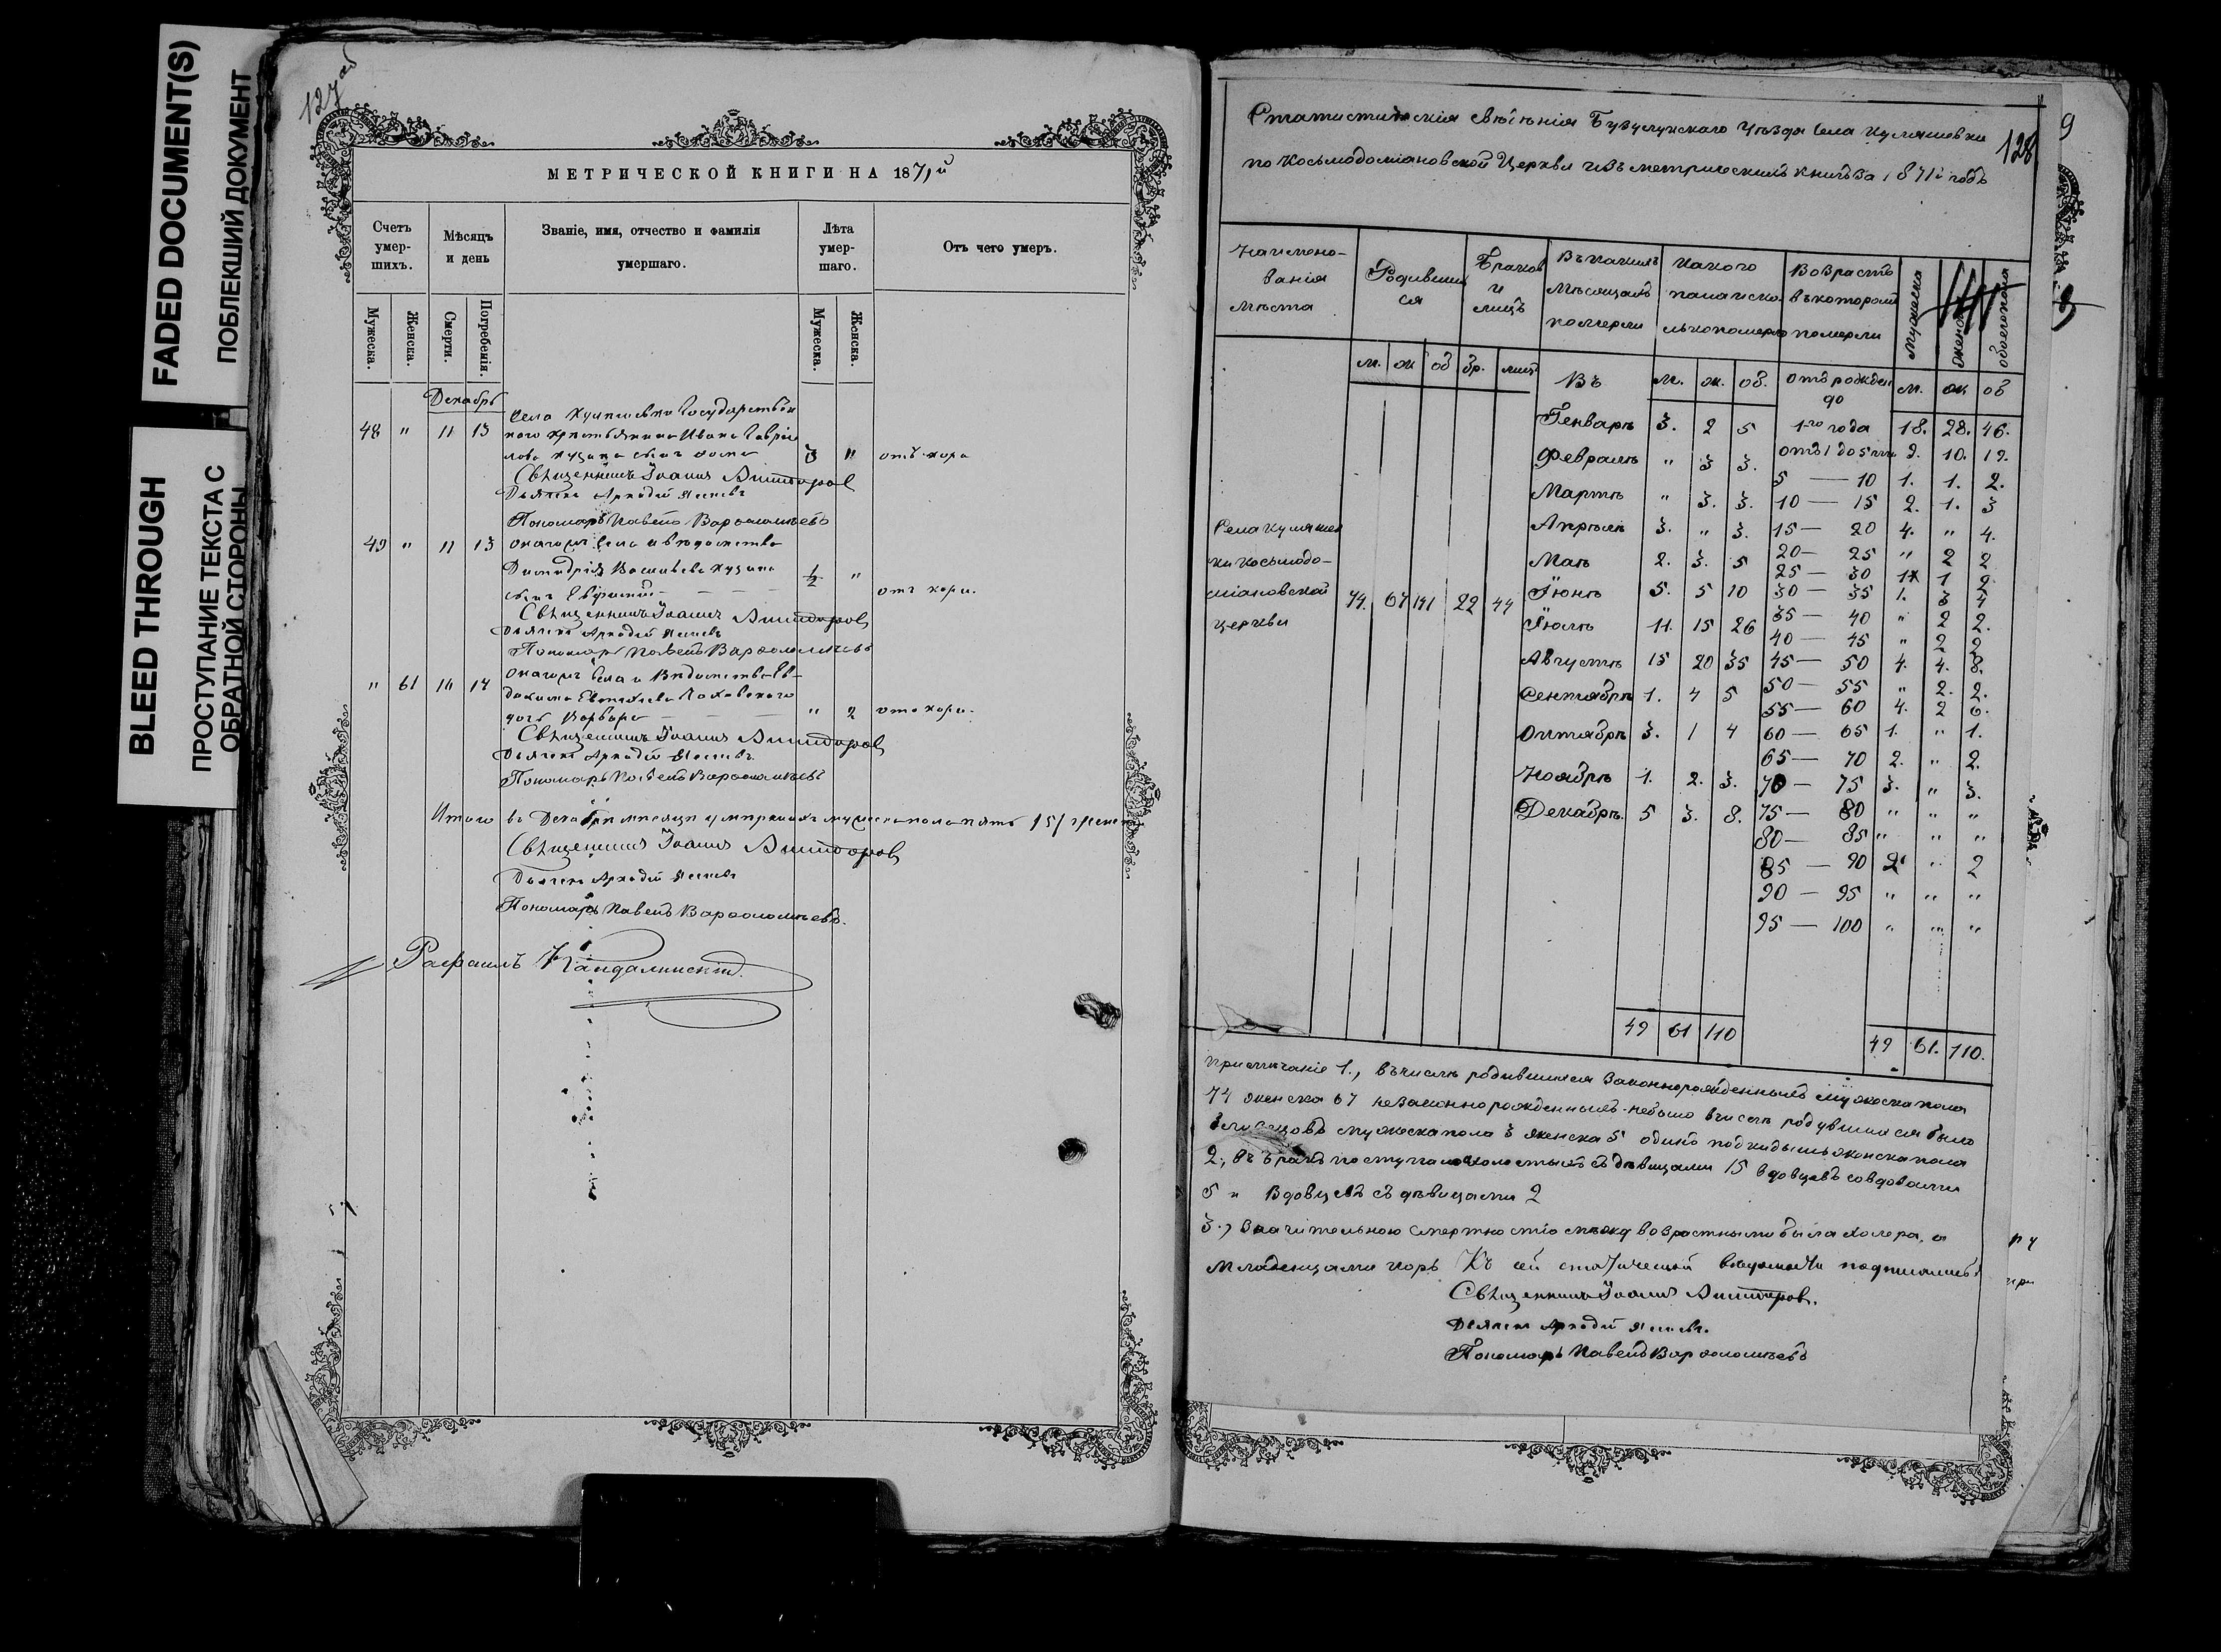 FADED DOCUMENT(S)
ПОБЛЕКШИЙ ДОКУМЕНТ
BLEED THROUGH
ПРОСТУПАНИЕ ТЕКСТА С
ОБРАТНОЙ СТОРОНЫ
127 об
МЕТРИЧЕСКОЙ КНИГИ НА 1871й
Счетъ умер-шихъ.
Мѣсяцъ и день
Званіе, имя, отчество и фамилія умершаго.
Лѣта умер-шаго.
Отъ чего умеръ.
Мужеска. Женска. Смерти. Погребенія. Мужеска. Женска.
Декабрь
48 " 11 13 Села Государствен
наго Крестьянина Ивана Гаврі
лова сынъ 3 " отъ кори
Священникъ Іоаннъ
Дьячекъ Аркадій
Пономарь Павелъ Варѳоломѣевъ
49 " 11 13 Онагожъ села и вѣдомства
Васильева
сынъ Евфимій 1/2 " отъ кори.
Священникъ Іоаннъ
Дьячекъ Аркадій
Пономарь Павелъ Варѳоломѣевъ
" 61 14 Онагожъ Села и Вѣдомства Ев-
докима
дочь Варвара " 2 отъ кори.
Священникъ Іоаннъ
Дьячекъ Аркадій
Пономарь Павелъ Варѳоломѣевъ
Итого въ Декабрѣ мѣсяцѣ умершихъ мужеска пола пять /5/
Священникъ Іоаннъ
Дьячекъ Аркадій
Пономарь Павелъ Варѳоломѣевъ.
Рафаилъ Кандалинскій.
9
128
Статистическія свѣдѣнія Бузулукскаго Уѣзда Села
по Косьмодоміановской Церкви изъ метрическихъ книгъ за 1871й годъ
Наимено-ванія мѣста
Родивших ся
Браковъ и лицъ
Въ какихъ мѣсяцахъ померли
Какого пола и ско лько померло
Возрастъ въ которомъ померли
Мужеска
Женска
обоего пола
м. ж об бр. лицъ Въ м. ж. об. отъ рожден до м. ж об
Генварѣ 3. 2 5 1го года 18. 28. 46.
Февралѣ " 3 3. отъ 1 до 5 9. 10. 19.
5 — 10 1. 1. 2.
Мартѣ " 3. 3. 10 — 15 2. 1. 3
Апрѣлѣ 3. " 3. 15 — 20 4. " 4.
20 — 25 " 2 2
Маѣ 2. 3. 5 25 — 30 1 1 2
Іюнѣ 5. 5 10 30 — 35 1. 3 4
Села
Косьмодо-
міановской
церкви
74. 67 141 22 44
35 — 40 " 2 2.
Іюлѣ 11. 15 26 40 — 45 " 2 2
Августѣ 15 20 35 45 — 50 4. 4. 8.
Сентябрѣ 1. 4 5 50 — 55 " 2. 2.
55 — 60 4. 2 6.
Октябрѣ 3. 1 4 60 — 65 1. " 1.
65 — 70 2. " 2.
Ноябрѣ 1. 2. 3. 70 — 75 3. " 3.
Декабрѣ. 5 3. 8. 75 — 80 " " "
80 — 85 " " "
85 — 90 2 " 2
90 — 95 " " "
95 — 100 " " "
49 61 110
49 61. 110.
Примѣчаніе 1., въ числѣ родившихся законнорожденныхъ мужеска пола
74 женска 67 незаконнорожденныхъ небыло въ числѣ родившихся было
близнецовъ мужеска пола 3 женска 5 одинъ подкидышъ женска пола
2, Въ бракъ поступило холостыхъ съ дѣвицами 15 вдовцевъ совдовами
5 и Вдовцевъ съ дѣвицами 2
3., Значительною смертностію между возрастными была холера, а
младенцами корь Къ сей вѣдомости подписались:
Священникъ Іоаннъ
Дьячекъ Аркадій
Пономарь Павелъ Варѳоломѣевъ